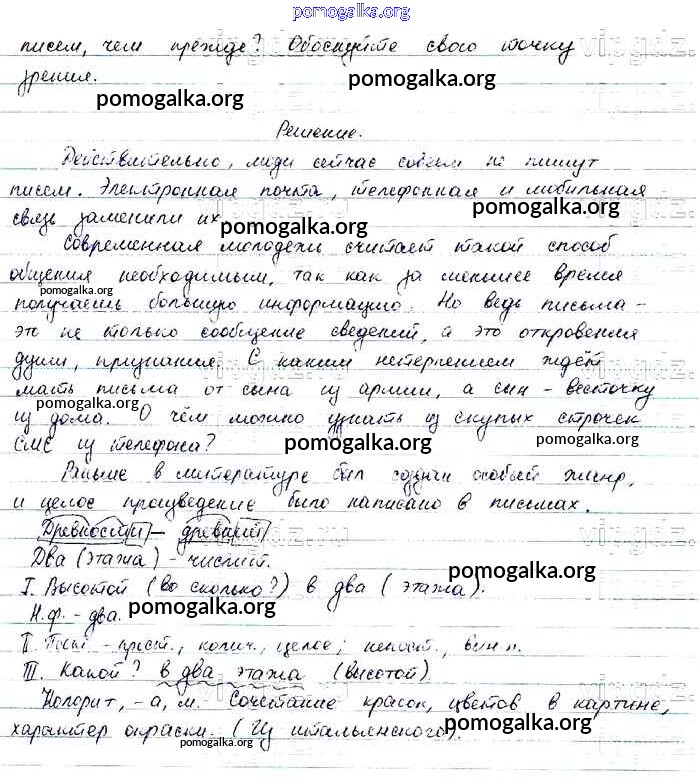 pomogalka.org
писем, чем прежде? Обоснуйте свою точку
зрения.
pomogalka.org
pomogalka.org
Решение.
Действительно, люди сейчас совсем не пишут
писем. Электронная почта, телефонная и мобильная
связь заменили их.
pomogalka.org
Современная молодежь считает такой способ
общения необходимым, так как за меньшее время
pomogalka.org
получаешь большую информацию. Но ведь письма -
это не только сообщение сведений, а это откровения
души, признания. С каким нетерпением ждёт
pomogalka.org
мать письма от сына из армии, а сын - весточку
pomogalka.org
из дома. О чём можно узнать из скупых строчек
СМС из телефона?
pomogalka.org
pomogalka.org
Раньше в литературе был создан особый жанр,
и целое произведение было написано в письмах.
Древности - древний
Два (этажа) - числит.
pomogalka.org
I. Высотой (во сколько?) в два (этажа).
Н.ф. - два.
pomogalka.org
II. Пост. - прост., колич., целое; непост. - вин.п.
III. Какой? в два этажа (высотой)
Колорит, -а, м. Сочетание красок, цветов в картине,
характер окраски. (Из итальянского).
pomogalka.org
pomogalka.org